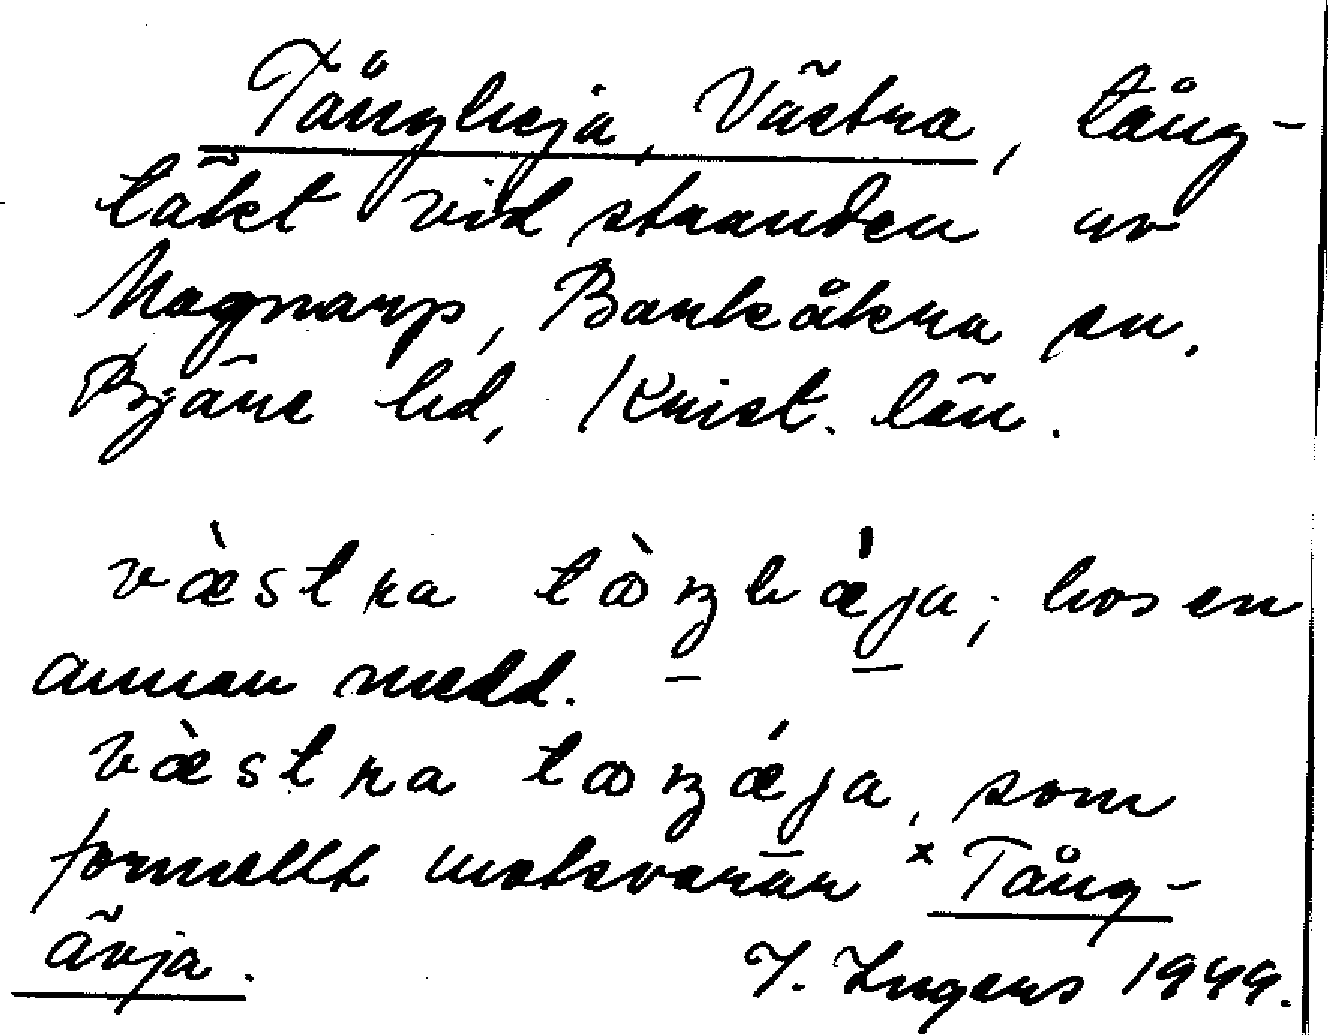 Tångheja, Västra, tång-
täkt vid stranden av
Magnarp, Barkåkra sn,
Bjäre hd, Krist. län.
væ̀stra tɷ̀ŋhǽja; hos en
annan medd.
væ̀stra tɷŋǽja, som
formellt motsvarar ˣTång-
ävja.
I. Ingers 1949.